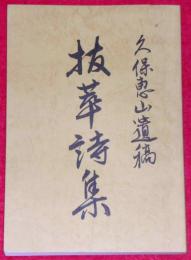 久保恵山遺稿
抜萃詩集